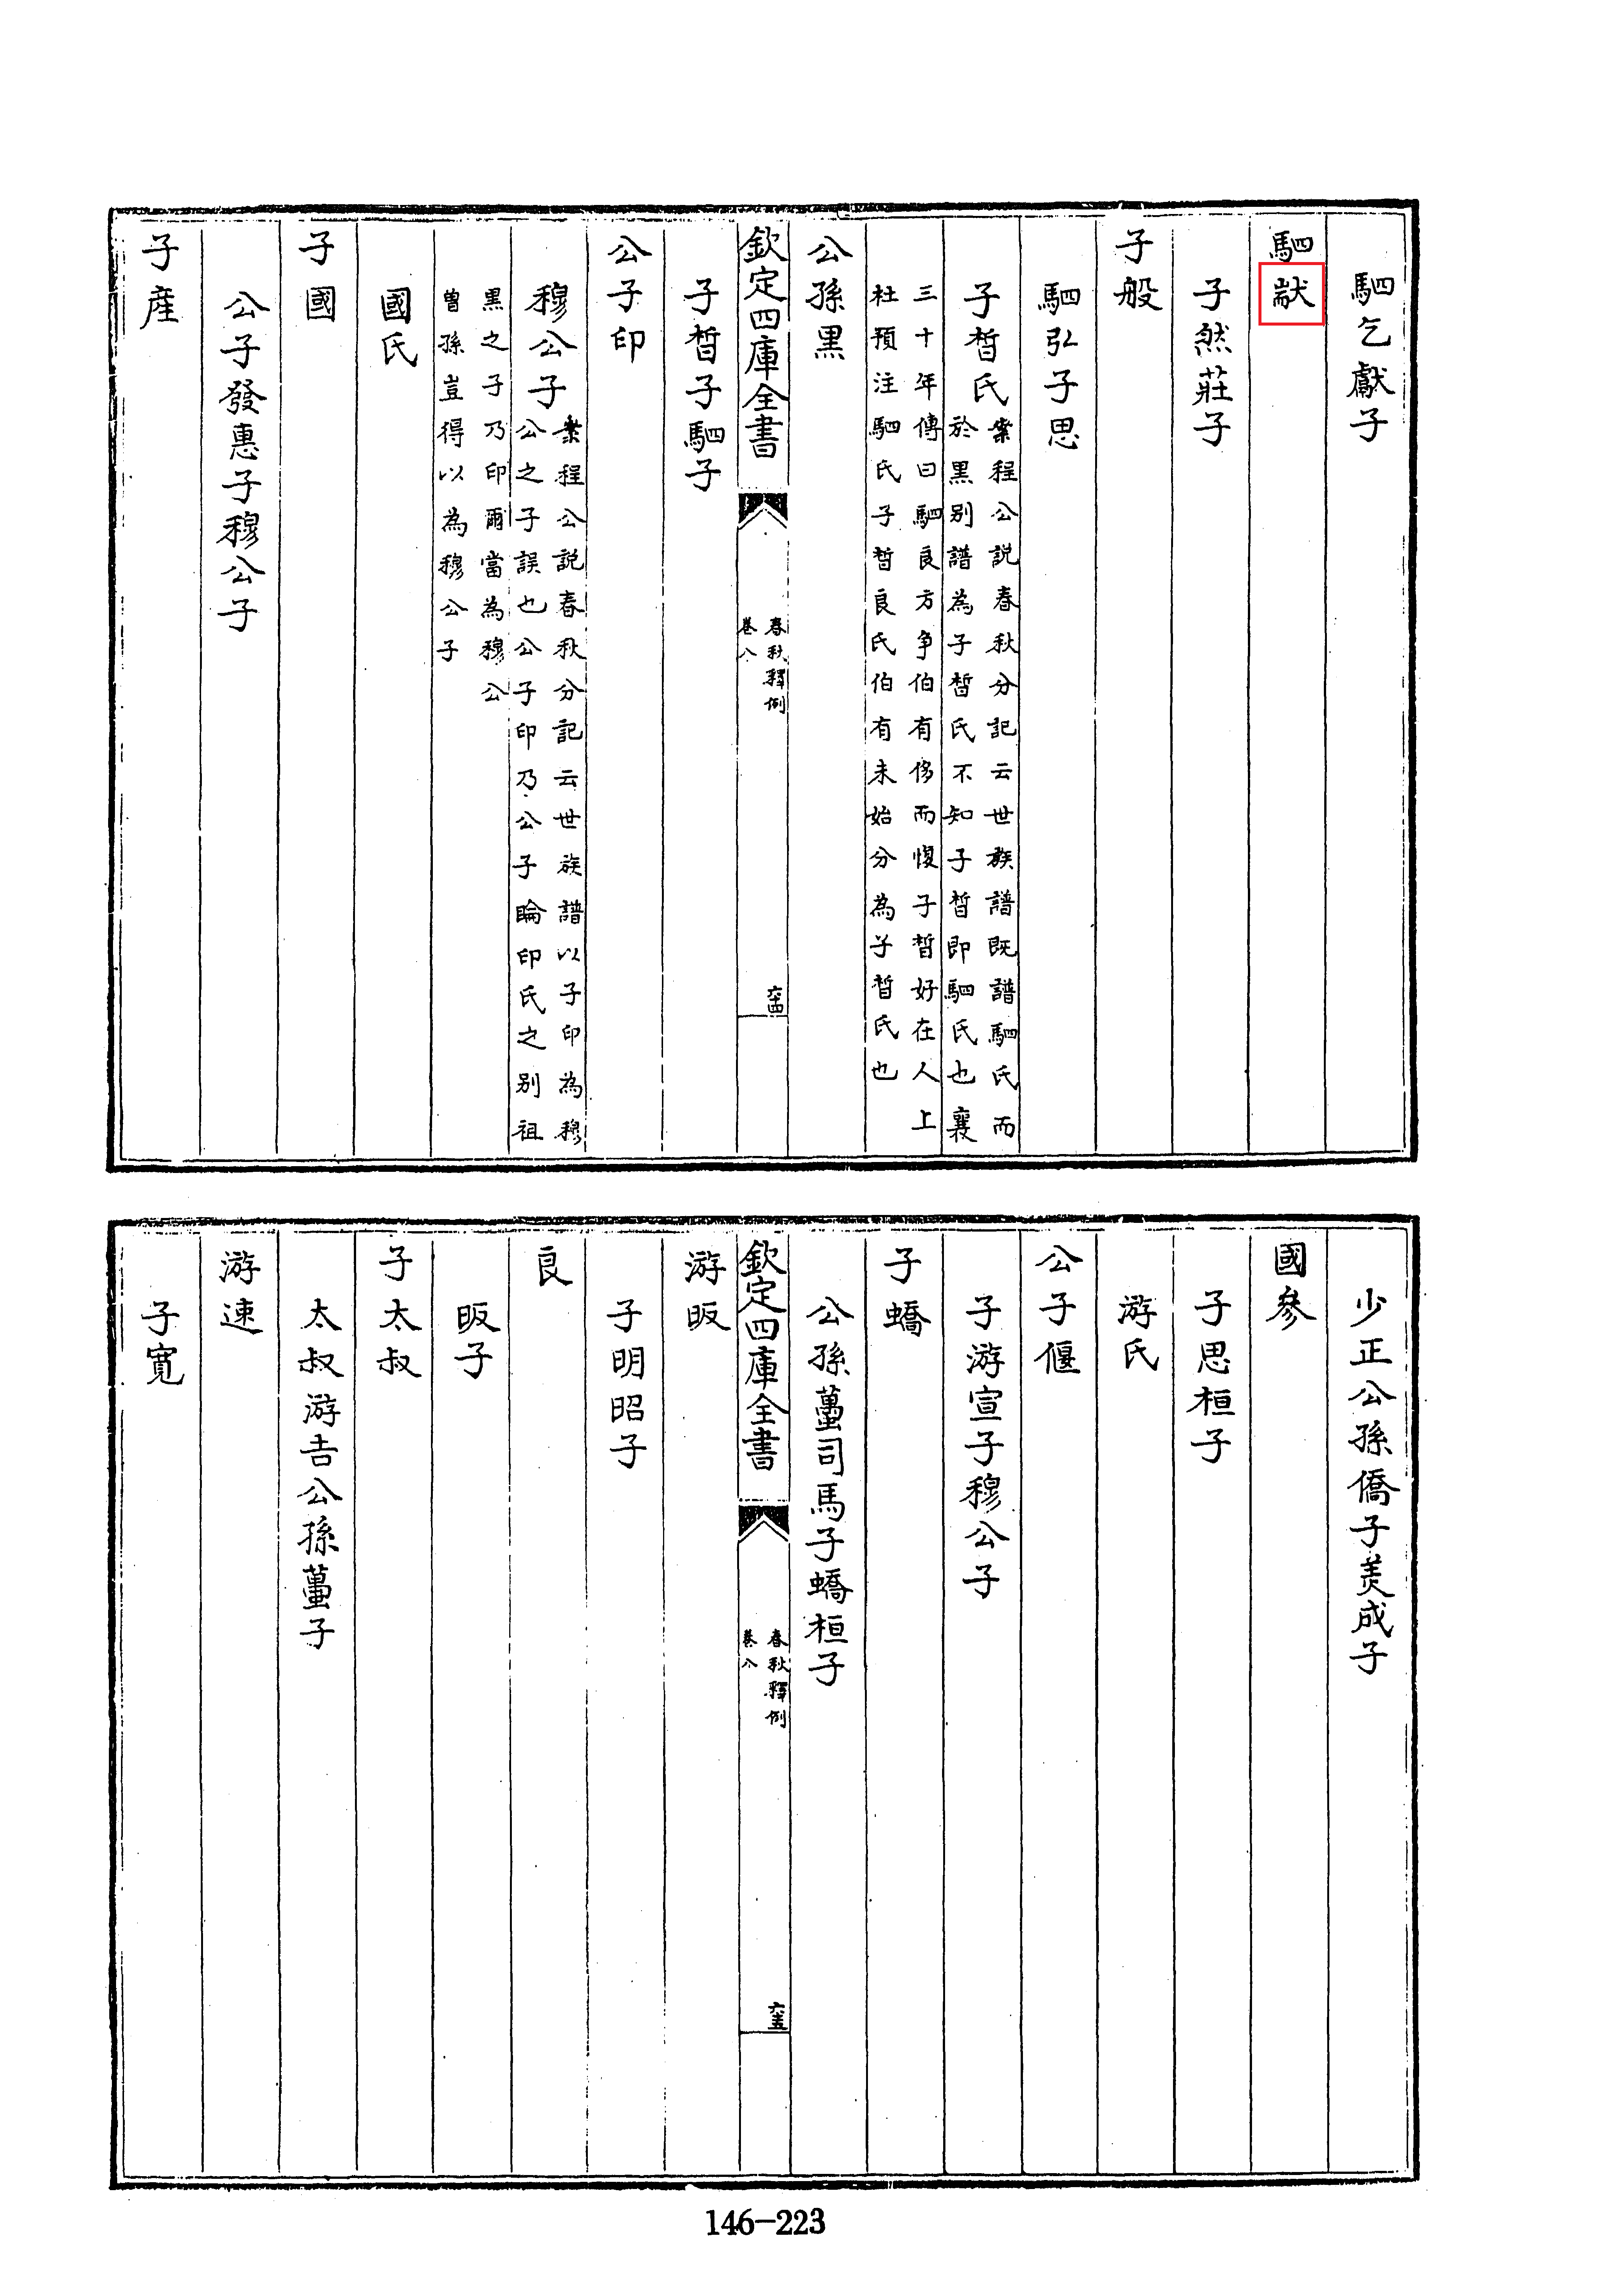 駟乞獻子
駟⿰耑犬
子然莊子
子般
駟弘子思
子晳氏案程公説春秋分記云世族譜既譜駟氏而
於黑别譜為子晳氏不知子晳即駟氏也襄
三十年傳曰駟良方争伯有侈而愎子晳好在人上
杜預注駟氏子晳良氏伯有未始分為子晳氏也
公孫黑
欽定四庫全書
春秋釋例
卷八
六十四
子晳子駟子
公子印
穆公子案程公説春秋分記云世族譜以子印為穆
公之子誤也公子印乃公子睔印氏之别祖
黑之子乃印爾當為穆公
曽孫豈得以為穆公子
國氏
子國
公子發惠子穆公子
子産
少正公孫僑子美成子
國參
子思桓子
游氏
公子偃
子游宣子穆公子
子蟜
公孫蠆司馬子蟜桓子
欽定四庫全書
春秋釋例
卷八
六十五
游昄
子明昭子
良
昄子
子太叔
太叔游吉公孫蠆子
游速
子寛
146-223